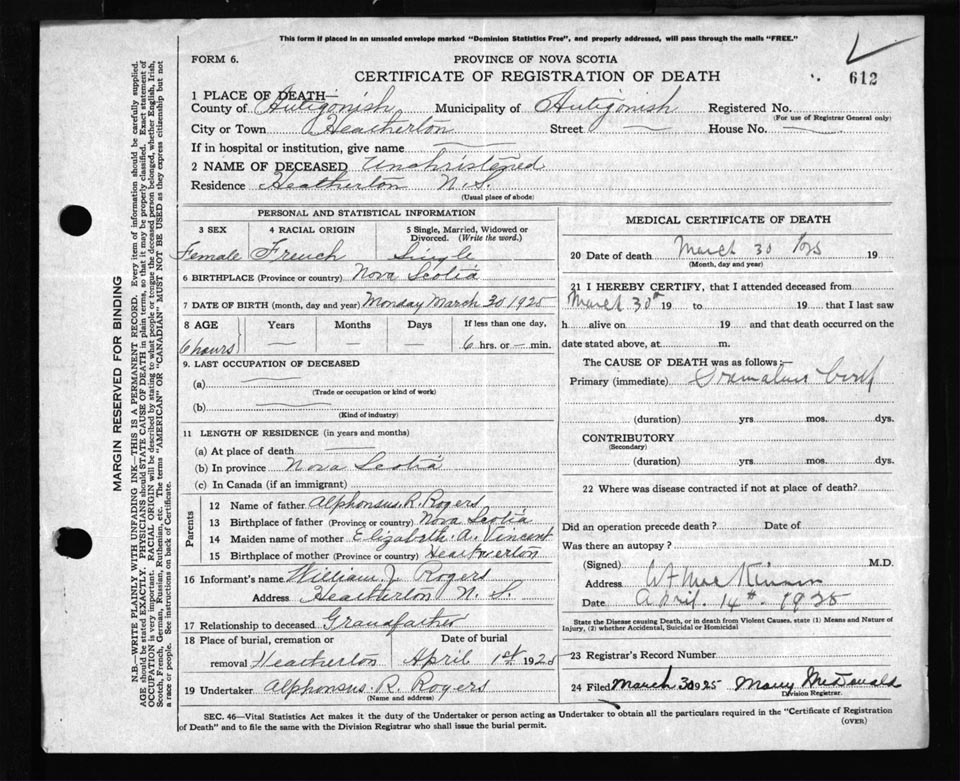 This form if placed in an unsealed envelope marked "Dominion Statistics Free", and properly addressed, will pass through the mails "FREE."
FORM 6.
PROVINCE OF NOVA SCOTIA
CERTIFICATE OF REGISTRATION OF DEATH
612
1 PLACE OF DEATH—
County of Antigonish Municipality of Antigonish Registered No.
(For use of Registrar General only)
City or Town Heatherton Street — House No. —
If in hospital or institution, give name —
2 NAME OF DECEASED Unchristened
Residence Heatherton N.S.
(Usual place of abode)
PERSONAL AND STATISTICAL INFORMATION
3 SEX 4 RACIAL ORIGIN 5 Single, Married, Widowed or Divorced. (Write the word.)
Female French Single
6 BIRTHPLACE (Province or country) Nova Scotia
7 DATE OF BIRTH (month, day and year) Monday March 30 1925
8 AGE Years Months Days If less than one day,
6 hours — — — 6 hrs. or — min.
9. LAST OCCUPATION OF DECEASED
(a) —
(Trade or occupation or kind of work)
(b) —
(Kind of industry)
11 LENGTH OF RESIDENCE (in years and months)
(a) At place of death —
(b) In province Nova Scotia
(c) In Canada (if an immigrant)
Parents
12 Name of father Alphonsus. R. Rogers
13 Birthplace of father (Province or country) Nova Scotia
14 Maiden name of mother Elizabeth. A. Vincent
15 Birthplace of mother (Province or country) Heatherton
16 Informant's name William J. Rogers
Address Heatherton N. S.
17 Relationship to deceased Grandfather
18 Place of burial, cremation or removal Heatherton
Date of burial April 1st 1925
19 Undertaker Alphonsus. R. Rogers
(Name and address)
MEDICAL CERTIFICATE OF DEATH
20 Date of death March 30 19
(Month, day and year)
21 I HEREBY CERTIFY, that I attended deceased from
March 30th 19 to 19 that I last saw
h alive on 19 and that death occurred on the
date stated above, at m.
The CAUSE OF DEATH was as follows:
Primary (immediate)
(duration) yrs. mos. dys.
CONTRIBUTORY
(Secondary)
(duration) yrs. mos. dys.
22 Where was disease contracted if not at place of death?
Did an operation precede death? Date of
Was there an autopsy?
(Signed) M.D.
Address
Date April. 14th. 1925
State the Disease causing Death, or in death from Violent Causes, state (1) Means and Nature of
Injury, (2) whether Accidental, Suicidal or Homicidal
23 Registrar's Record Number
24 Filed March 30 1925 Mary McDonald
Division Registrar.
SEC. 46—Vital Statistics Act makes it the duty of the Undertaker or person acting as Undertaker to obtain all the particulars required in the "Certificate of Registration
of Death" and to file the same with the Division Registrar who shall issue the burial permit.
(OVER)
MARGIN RESERVED FOR BINDING
N.B.—WRITE PLAINLY WITH UNFADING INK—THIS IS A PERMANENT RECORD. Every item of information should be carefully supplied.
AGE should be stated EXACTLY. PHYSICIANS should STATE CAUSE OF DEATH in plain terms, so that it may be properly classified. Exact statement of
OCCUPATION is very important. RACIAL ORIGIN will be described by stating to what people or tongue the deceased person belonged, whether English, Irish,
Scotch, French, German, Russian, Ruthenian, etc. The terms "AMERICAN" OR "CANADIAN" MUST NOT BE USED as they express citizenship but not
a race or people. See instructions on back of Certificate.